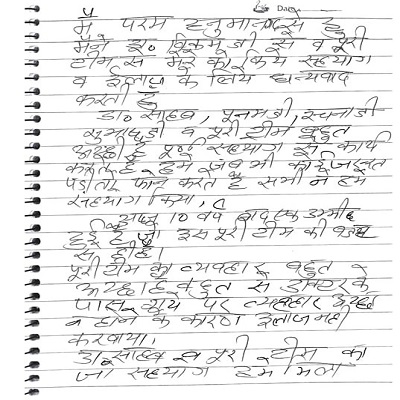 में परम हनुमानदास हूँ
मैंने डा० विक्रमजी से व पूरी
टीम से मेरे को किये सहयोग
व ईलाज के लिये धन्यवाद
करती हूँ
डा० साहब, पूनमजी, रचनाजी
व पूरी टीम बहुत
अच्छी है पूर्ण सहयोग से कार्य
करते है, हमे जब भी कोई जरूरत
पड़ी तो फोन करते है सभी ने हमे
सहयोग किया,
आज 10 वर्ष बाद एक उम्मीद
हुई है जो इस पूरी टीम की वजह
से ही है।
पूरी टीम का व्यवहार बहुत
अच्छा है बहुत से डॉक्टर के
पास गये पर व्यवहार अच्छा
न होने के कारण ईलाज नही
करवाया,
डा. साहब व पूरी टीम का
जो सहयोग हमे मिला